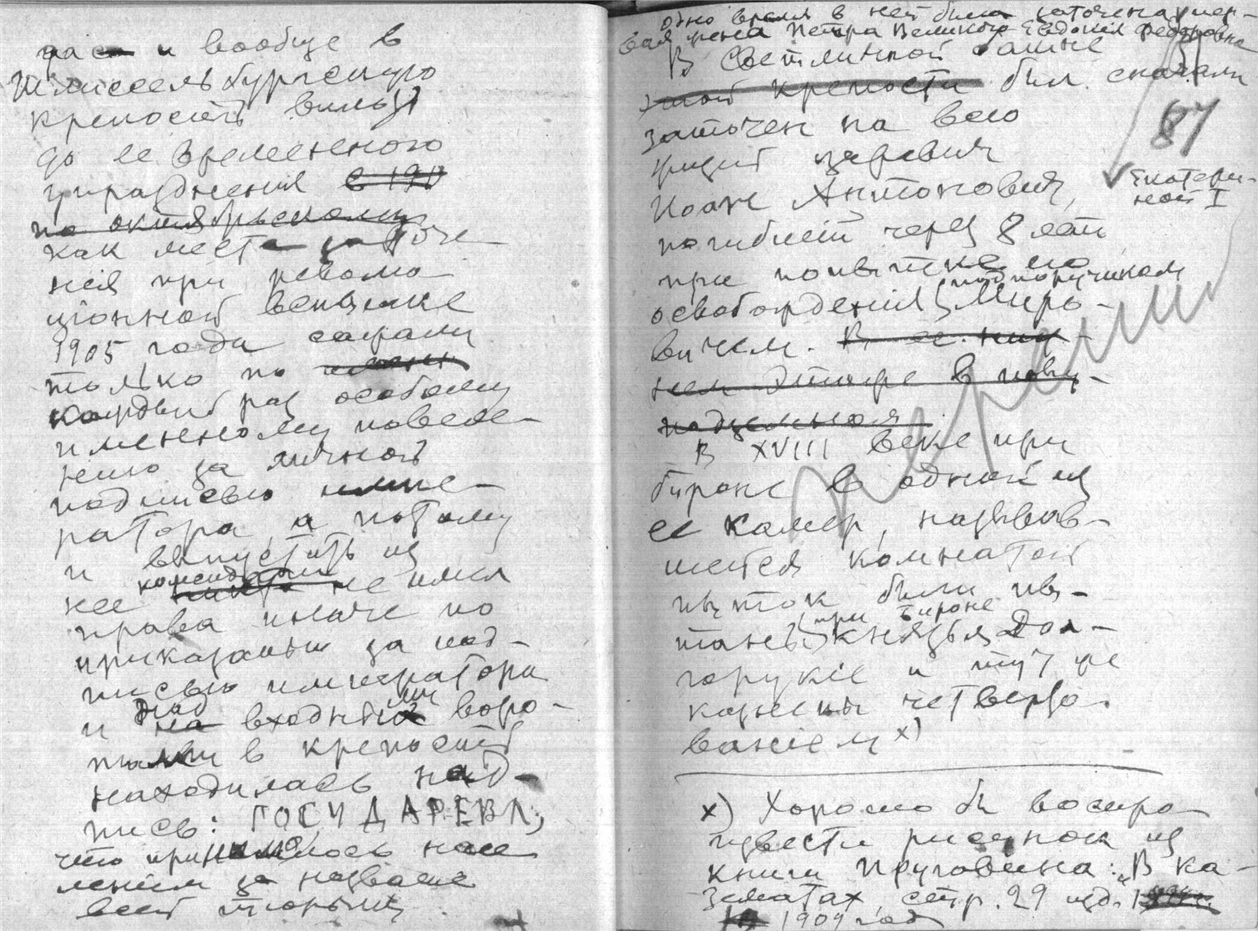 нас и вообще в
Шлиссельбургскую
крепость вплоть
до ее временного
упразднения в 190
по октябрьскому
как места заточе-
нія при револю-
ціонной вспышке
1905 года сажали
только по
каждый раз особому
именному повеле-
нію за личной
подписью импе-
ратора, а потому
и выпустить из
нее комендант не имел
права иначе по
приказаньи за под-
писью императора
и над входными воро-
тами в крепость
находилась над-
пись: ГОСУДАРЕВА,
что принималось насе-
лением за название
всей тюрьмы
одно время в ней была заточена пер-
вая жена Петра Великого Евдокия Федоровна
В Светличной башне
этой крепости был сначала
87
заточен на всю
жизнь царевич
Екатери-
ной I
Иоанн Антонович,
погибший через 8 лет
при попытке его
освобождения подпоручиком Миро-
вичем. В ее ниж-
нем этаже в
подземелья
В XVIII веке при
Бироне в одной из
ее камер, называв-
шейся комнатой
пыток были пы-
таны при Бироне князья Дол-
горукіе и тут же
казнены четверто-
ваніем х)
х) Хорошо бы воспро-
извести рисунок из
книги Пругавина: „В ка-
зематах, стр. 29 изд.
1909 год